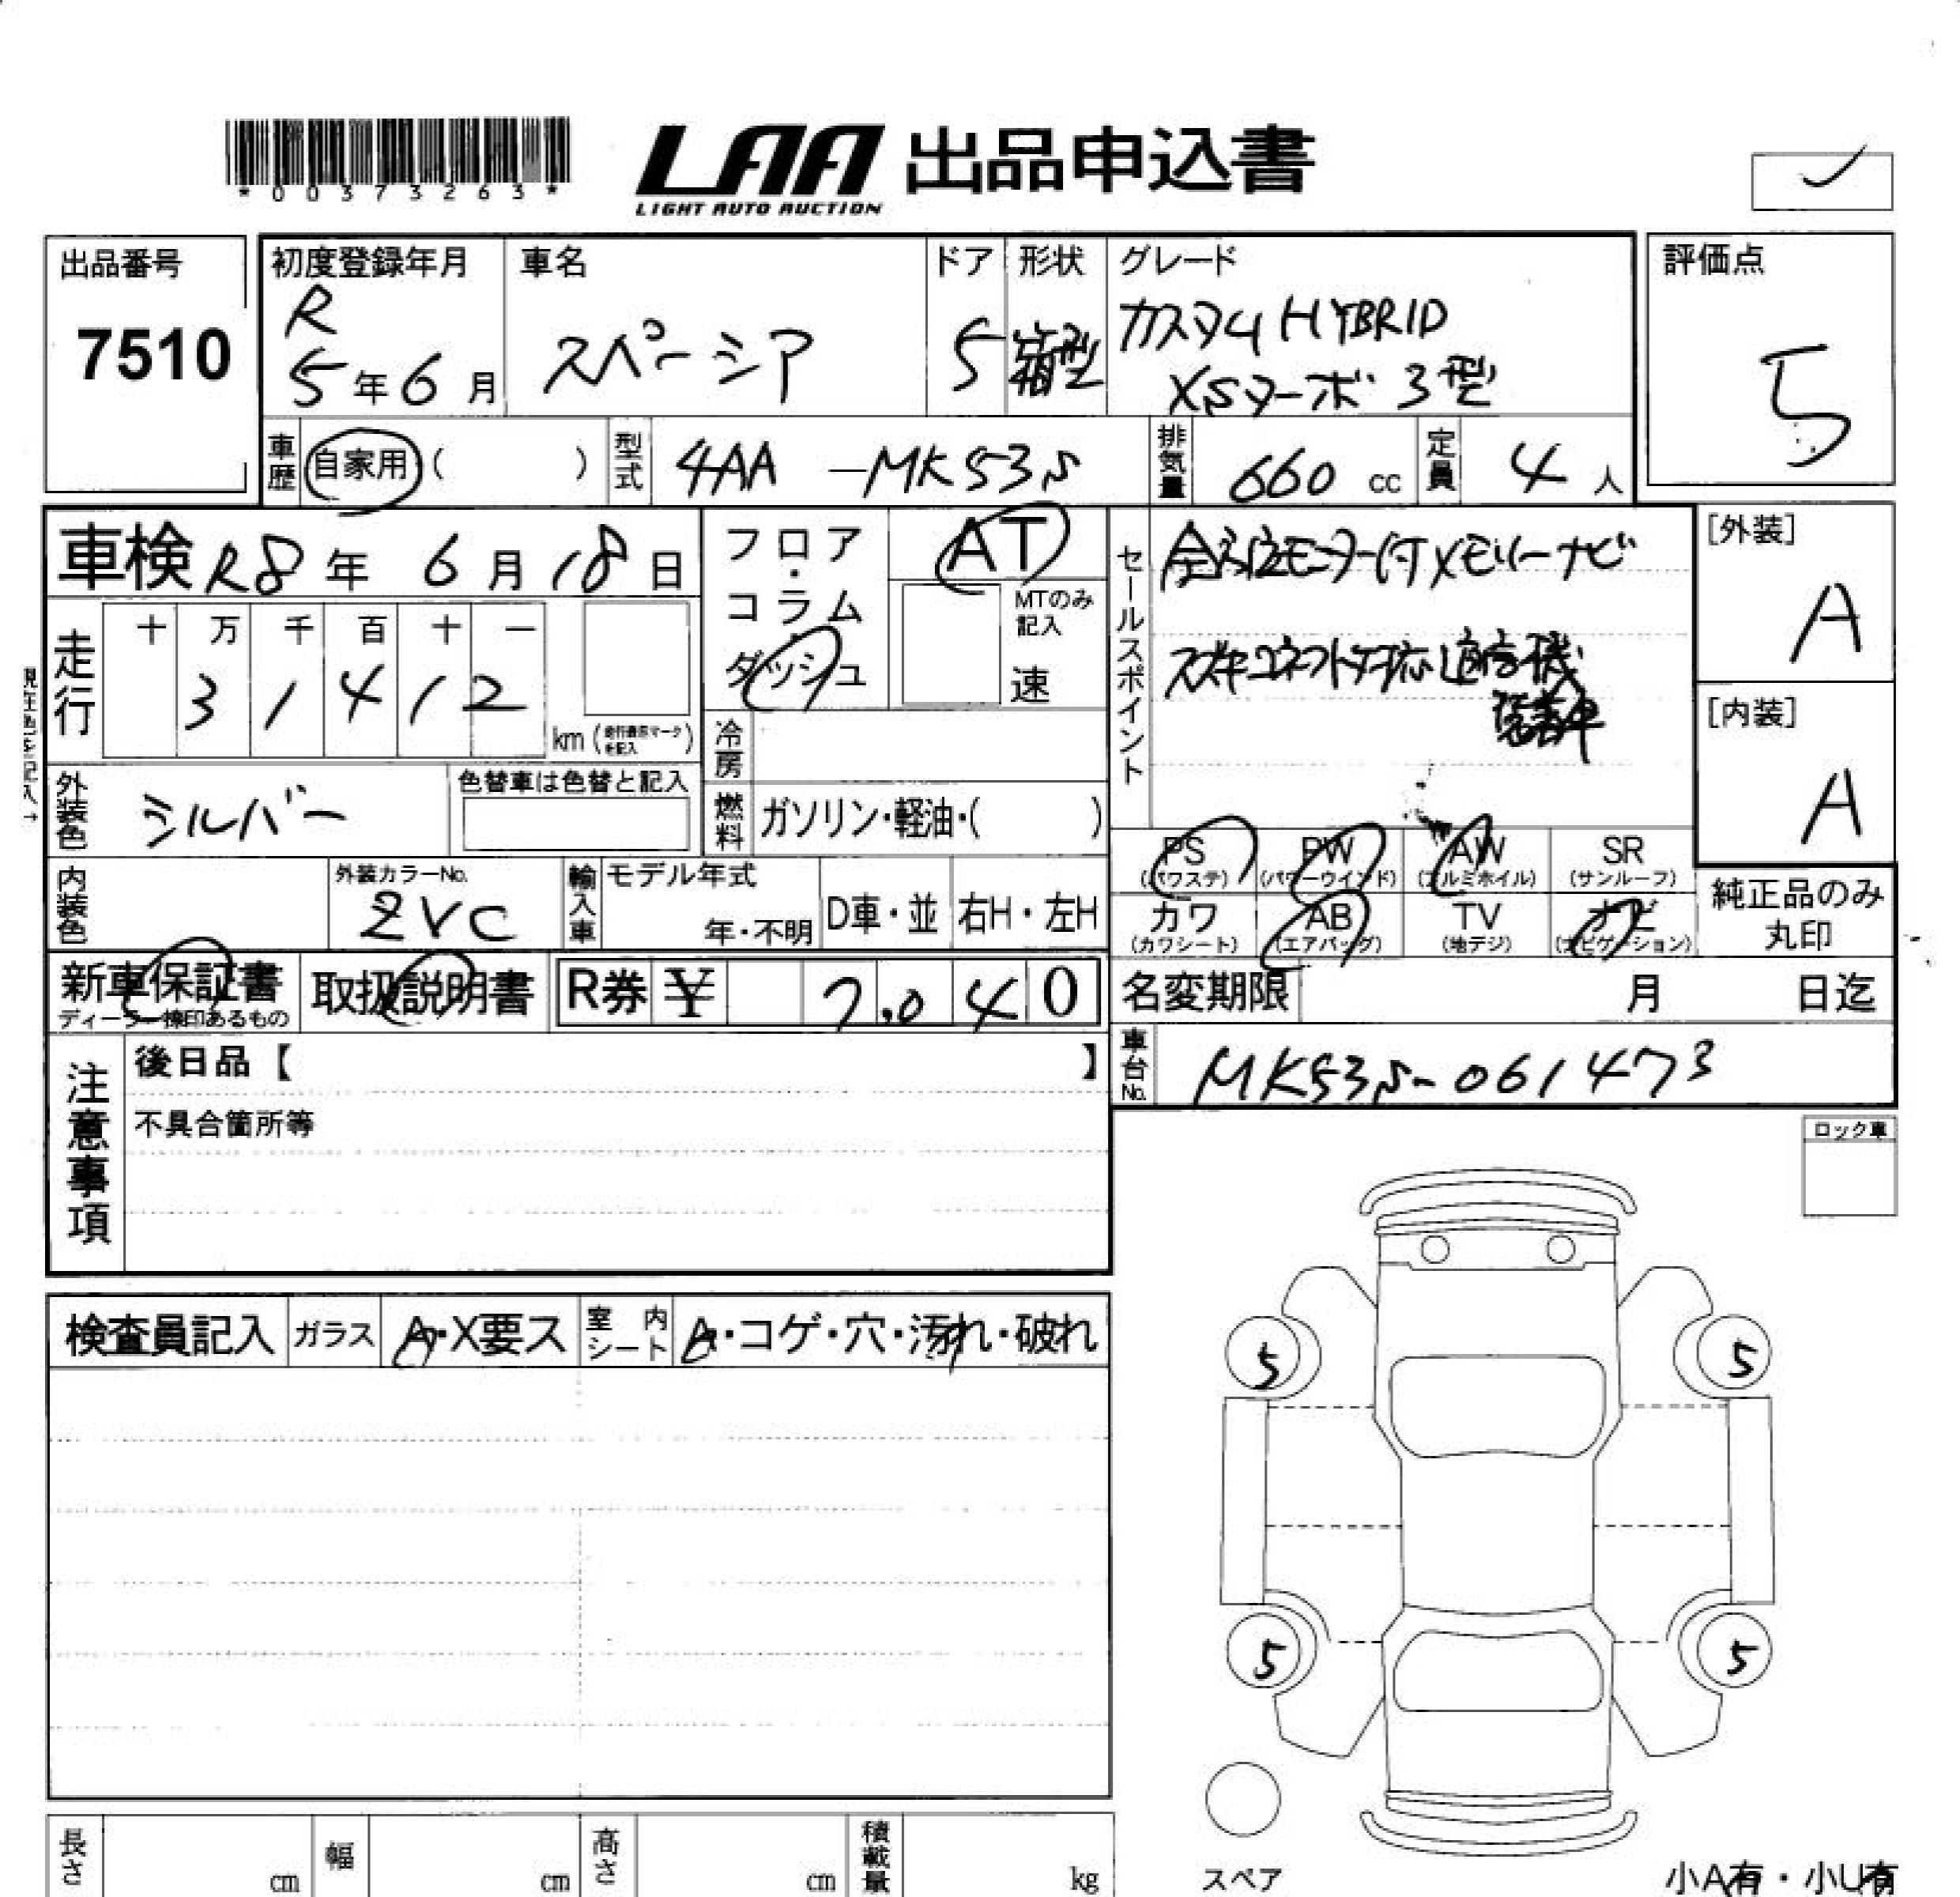 *00373263*
LAA 出品申込書
LIGHT AUTO AUCTION
出品番号
7510
初度登録年月
R
5年6月
車名
スペーシア
ドア
5
形状
箱型
グレード
カスタムHYBRID
XSターボ 3型
評価点
5
車歴
自家用( )
型式
4AA-MK53S
排気量
660 cc
定員
4人
車検 R8年 6月18日
フロア・コラム・ダッシュ
AT
MTのみ記入
速
セールスポイント
全方位モニター付メモリーナビ
スズキコネクト対応通信機
装着車
[外装]
A
[内装]
A
現在色を記入→
走行
十 万 千 百 十 一
3 1 4 1 2
km (走行要否マークを記入)
冷房
外装色
シルバー
色替車は色替と記入
燃料
ガソリン・軽油・( )
PS
(パワステ)
PW
(パワーウインド)
AW
(アルミホイル)
SR
(サンルーフ)
内装色
外装カラーNo.
ZVC
輸入車
モデル年式
年・不明
D車・並
右H・左H
カワ
(カワシート)
AB
(エアバッグ)
TV
(地デジ)
ナビ
(ナビゲーション)
純正品のみ
丸印
新車保証書
ディーラー捺印あるもの
取扱説明書
R券 ¥ 7,040
名変期限
月 日迄
注意事項
後日品【 】
不具合箇所等
車台No.
MK53S-061473
ロック車
検査員記入
ガラス
A・X要ス
室内シート
A・コゲ・穴・汚れ・破れ
5
5
5
5
長さ
cm
幅
cm
高さ
cm
積載量
kg
スペア
小A有・小U有